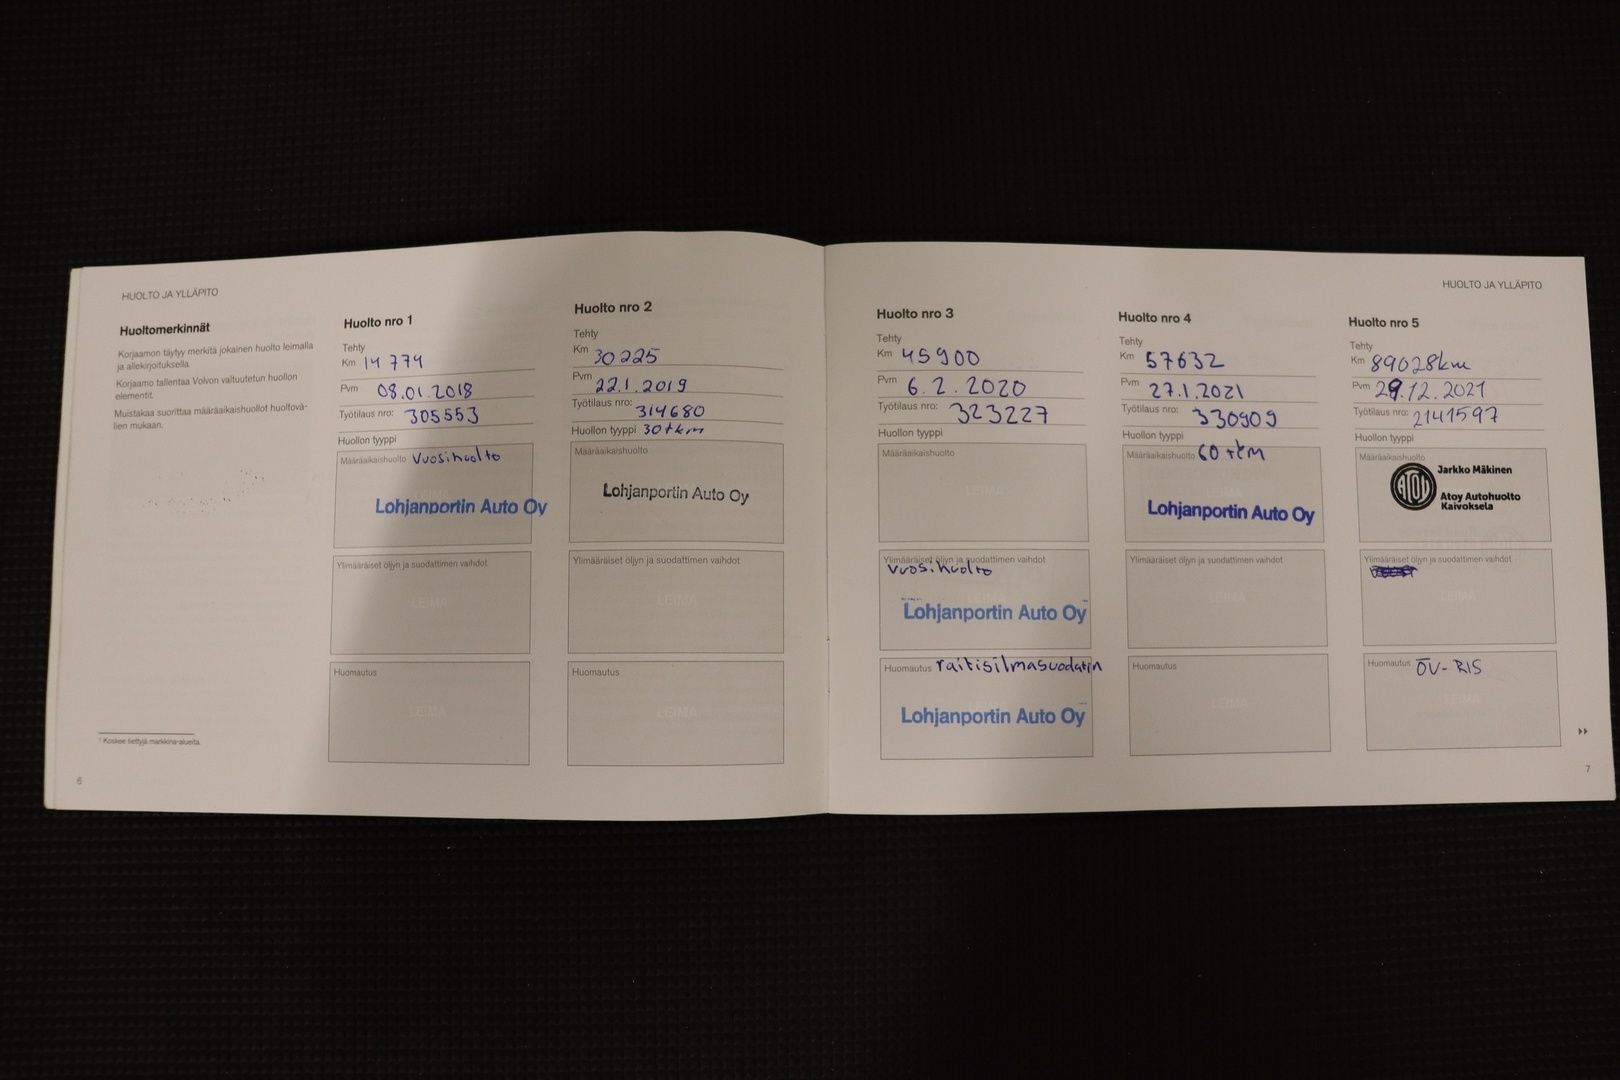 HUOLTO JA YLLÄPITO
Huoltomerkinnät
Korjaamon täytyy merkitä jokainen huolto leimalla
ja allekirjoituksella.
Korjaamo tallentaa Volvon valtuutetun huollon
elementit.
Muistakaa suorittaa määräaikaishuollot huoltovä-
lien mukaan.
1 Koskee tiettyjä markkina-alueita.
6
Huolto nro 1
Tehty
Km 14 774
Pvm 08.01.2018
Työtilaus nro: 305553
Huollon tyyppi
Määräaikaishuolto Vuosihuolto
LEIMA
Lohjanportin Auto Oy
Ylimääräiset öljyn ja suodattimen vaihdot
LEIMA
Huomautus
LEIMA
Huolto nro 2
Tehty
Km 30225
Pvm 22.1.2019
Työtilaus nro: 314680
Huollon tyyppi 30tkm
Määräaikaishuolto
Lohjanportin Auto Oy
Ylimääräiset öljyn ja suodattimen vaihdot
LEIMA
Huomautus
LEIMA
HUOLTO JA YLLÄPITO
Huolto nro 3
Tehty
Km 45900
Pvm 6.2.2020
Työtilaus nro: 323227
Huollon tyyppi
Määräaikaishuolto
LEIMA
Ylimääräiset öljyn ja suodattimen vaihdot
Vuosihuolto
Lohjanportin Auto Oy
Huomautus raitisilmasuodatin
Lohjanportin Auto Oy
Huolto nro 4
Tehty
Km 57632
Pvm 27.1.2021
Työtilaus nro: 330909
Huollon tyyppi
Määräaikaishuolto 60 tkm
Lohjanportin Auto Oy
Ylimääräiset öljyn ja suodattimen vaihdot
LEIMA
Huomautus
LEIMA
Huolto nro 5
Tehty
Km 89028km
Pvm 29.12.2021
Työtilaus nro: 2141597
Huollon tyyppi
Määräaikaishuolto
ATOY
Jarkko Mäkinen
Atoy Autohuolto
Kaivoksela
Ylimääräiset öljyn ja suodattimen vaihdot
LEIMA
Huomautus ÖV-RIS
LEIMA
7